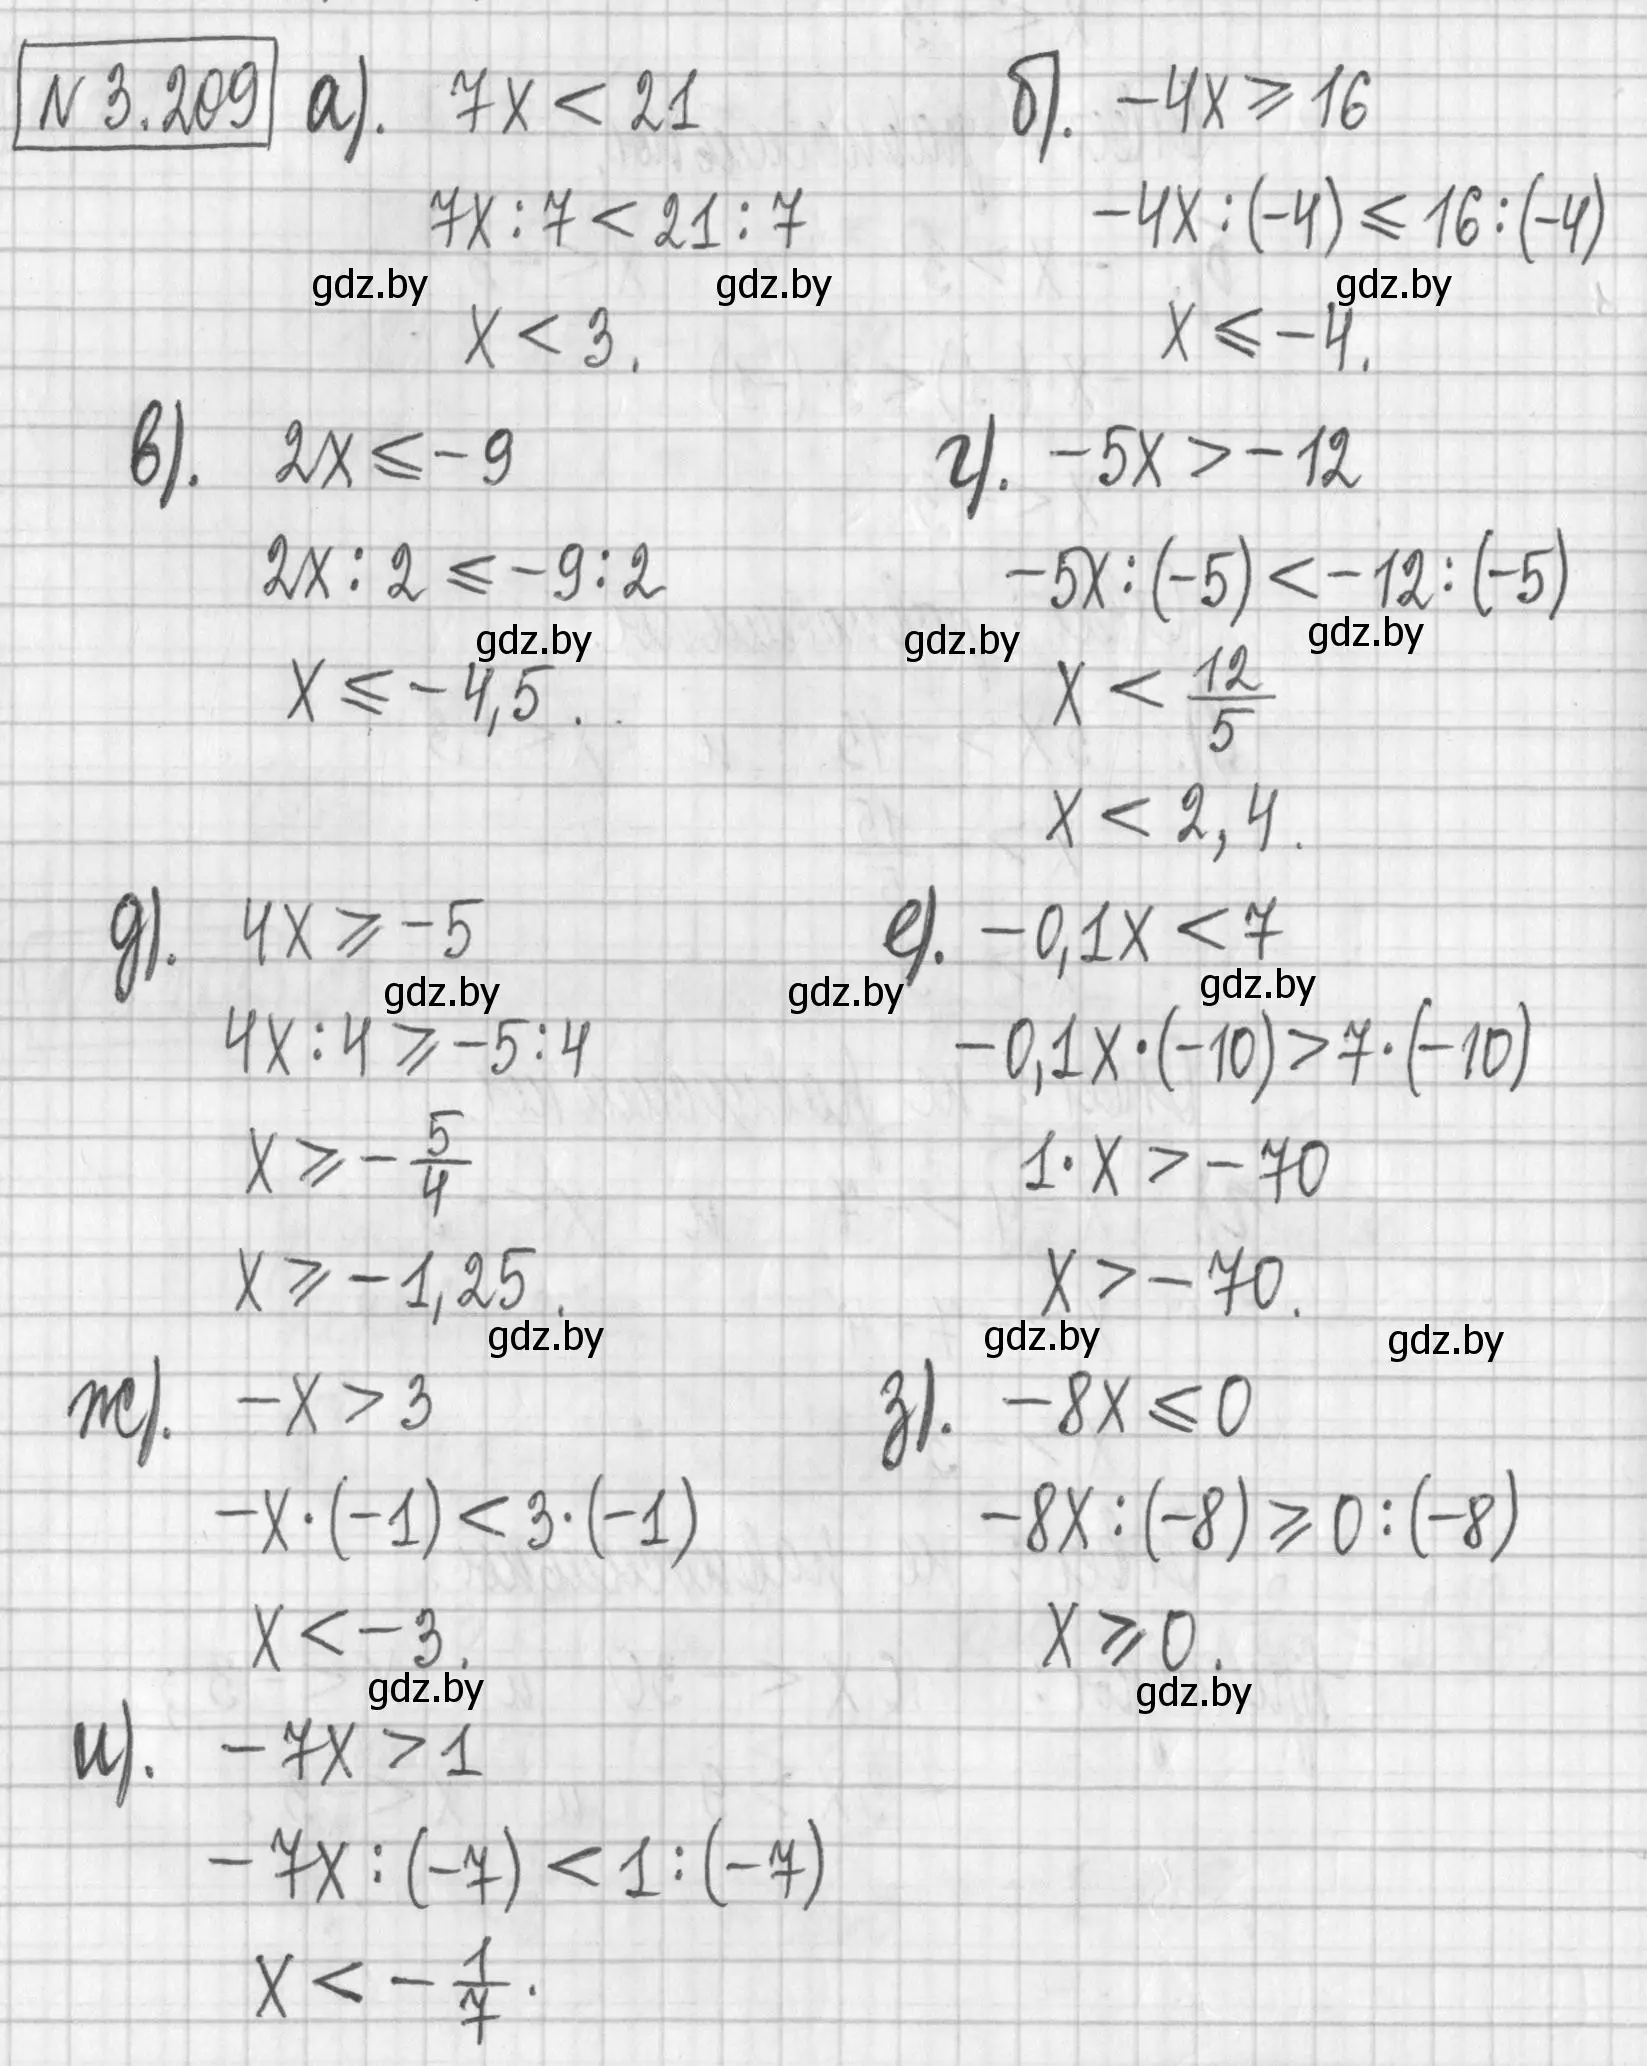 N 3.209 а). 7x < 21 б). -4x ⩾ 16
7x : 7 < 21 : 7 -4x : (-4) ⩽ 16 : (-4)
gdz.by gdz.by gdz.by
x < 3. x ⩽ -4.
в). 2x ⩽ -9 г). -5x > -12
2x : 2 ⩽ -9 : 2 -5x : (-5) < -12 : (-5)
gdz.by gdz.by gdz.by
x ⩽ -4,5. x < 12/5
x < 2,4.
д). 4x ⩾ -5 е). -0,1x < 7
gdz.by gdz.by gdz.by
4x : 4 ⩾ -5 : 4 -0,1x · (-10) > 7 · (-10)
x ⩾ -5/4 1 · x > -70
x ⩾ -1,25. x > -70.
gdz.by gdz.by gdz.by
ж). -x > 3 з). -8x ⩽ 0
-x · (-1) < 3 · (-1) -8x : (-8) ⩾ 0 : (-8)
x < -3. x ⩾ 0.
gdz.by gdz.by
и). -7x > 1
-7x : (-7) < 1 : (-7)
x < -1/7.